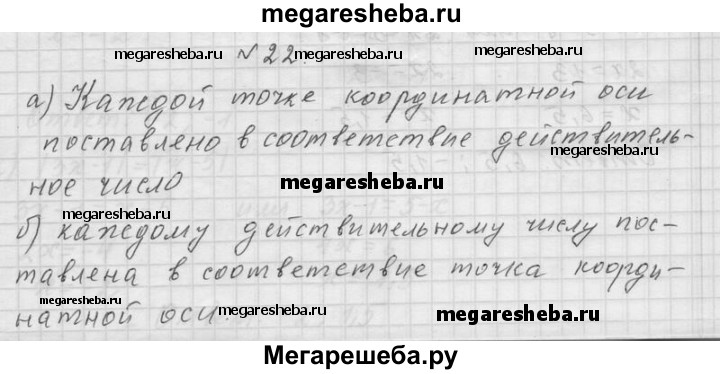 megaresheba.ru
megaresheba.ru № 22. megaresheba.ru
а) Каждой точке координатной оси
поставлено в соответствие действитель-
megaresheba.ru
ное число megaresheba.ru
megaresheba.ru megaresheba.ru
б) каждому действительному числу пос-
тавлена в соответствие точка коорди-
megaresheba.ru megaresheba.ru megaresheba.ru
натной оси.
Мегарешеба.ру